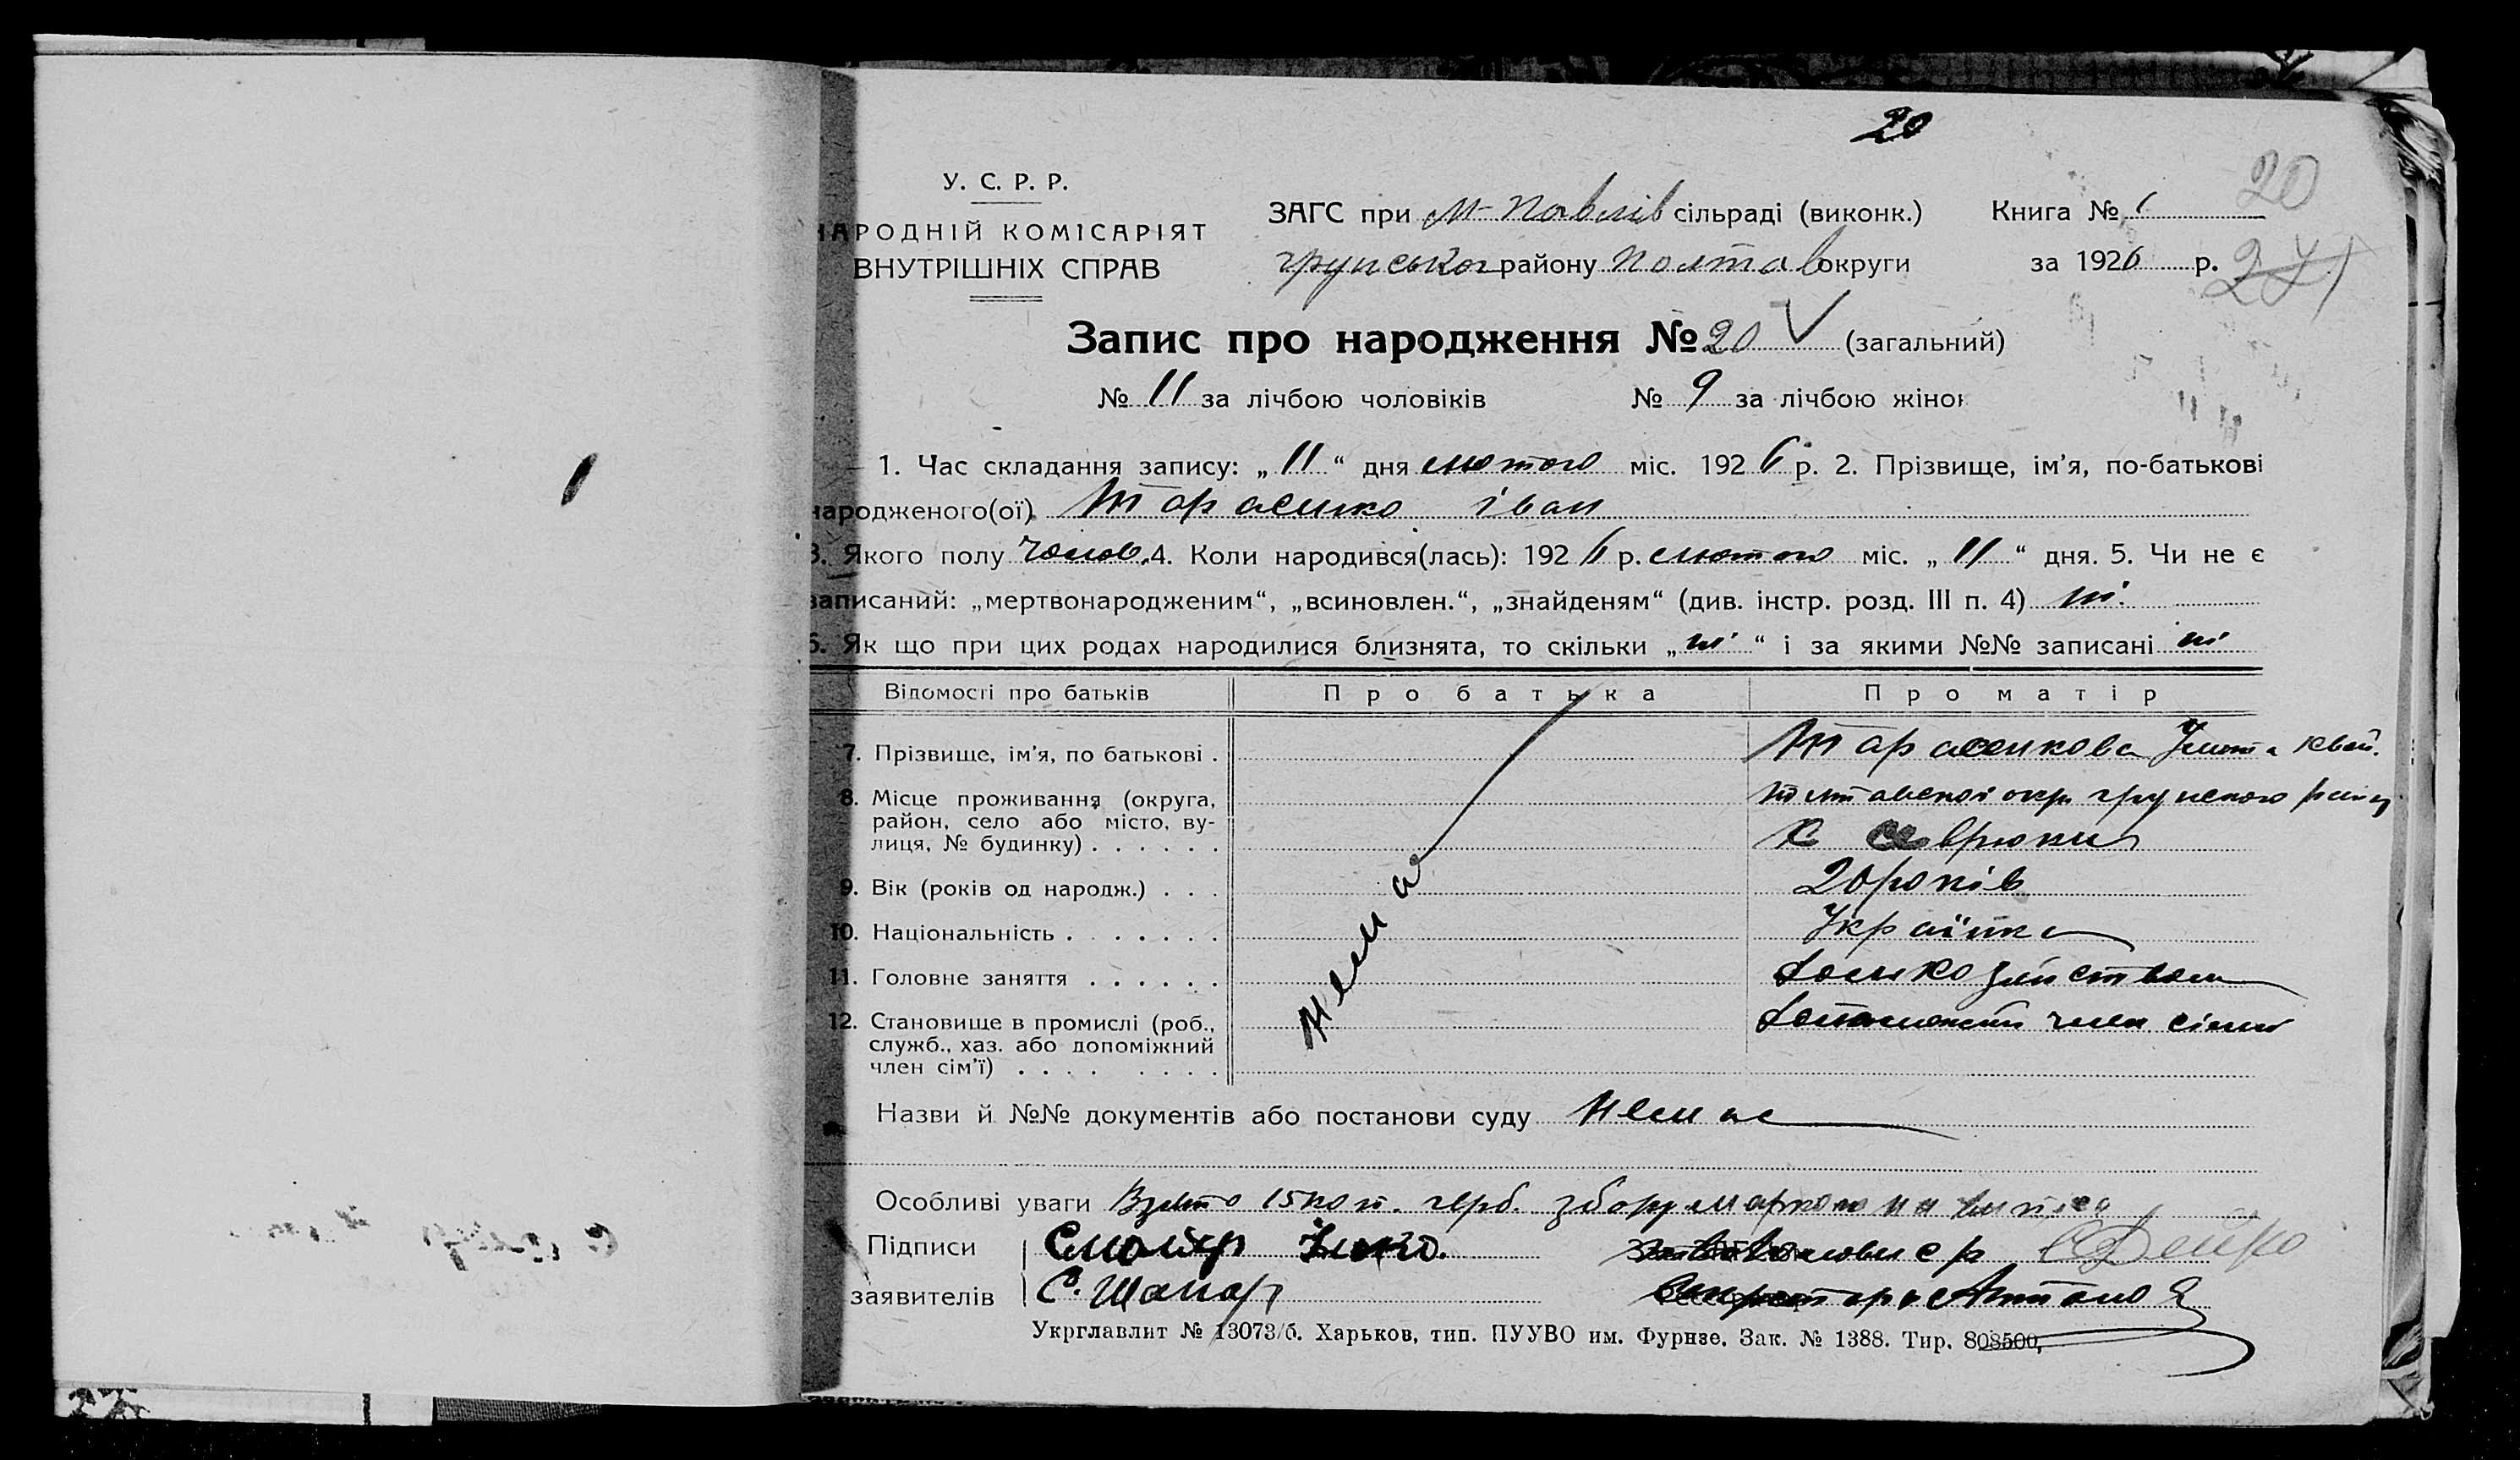 20
20
У. С. Р. Р.
НАРОДНІЙ КОМІСАРІЯТ
ВНУТРІШНІХ СПРАВ
ЗАГС при М-Павлів сільраді (виконк.) Книга № 1
району Полтав округи за 1926 р.
Запис про народження № 20 V (загальний)
№ 11 за лічбою чоловіків № 9 за лічбою жінок
1. Час складання запису: „ 11 “ дня лютого міс. 1926 р. 2. Прізвище, ім’я, по-батькові
народженого(ої) Тарасенко Іван
3. Якого полу чолов. 4. Коли народився(лась): 1926 р. лютого міс. „ 11 “ дня. 5. Чи не є
записаний: „мертвонародженим“, „всиновлен.“, „знайденям“ (див. інстр. розд. III п. 4) ні.
6. Як що при цих родах народилися близнята, то скільки „ ні “ і за якими №№ записані ні
Відомості про батьків Про батька Про матір
7. Прізвище, ім’я, по батькові . Тарасенкова
8. Місце проживання (округа,
район, село або місто, ву-
лиця, № будинку) . . . . . .
9. Вік (років од народж.) . . . 20 років
10. Національність . . . . . . . Українка
11. Головне заняття . . . . . .
12. Становище в промислі (роб.,
служб., хаз. або допоміжний
член сім’ї) . . . . . . . .
Немає
член сім
Назви й №№ документів або постанови суду Немає
Особливі уваги Взято 15 коп. герб. збору маркою на
Підписи
заявителів С. Шапар
Укрглавлит № 13073/б. Харьков, тип. ПУУВО им. Фрунзе. Зак. № 1388. Тир. 808500,